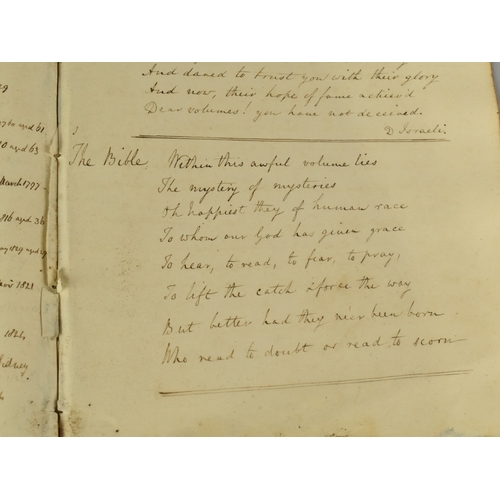 And dared to trust you with their glory
And now, their hope of fame achiev'd
Dear volumes! you have not deceived.
D Israeli
3
The Bible. Within this awful volume lies
The mystery of mysteries
Oh happiest they of human race
To whom our God has given grace
To hear, to read, to fear, to pray,
To lift the catch & force the way
But better had they ne'er been born
Who read to doubt or read to scorn
aged 61
aged 63
March 1797
aged 36
1821
1821,
Sidney